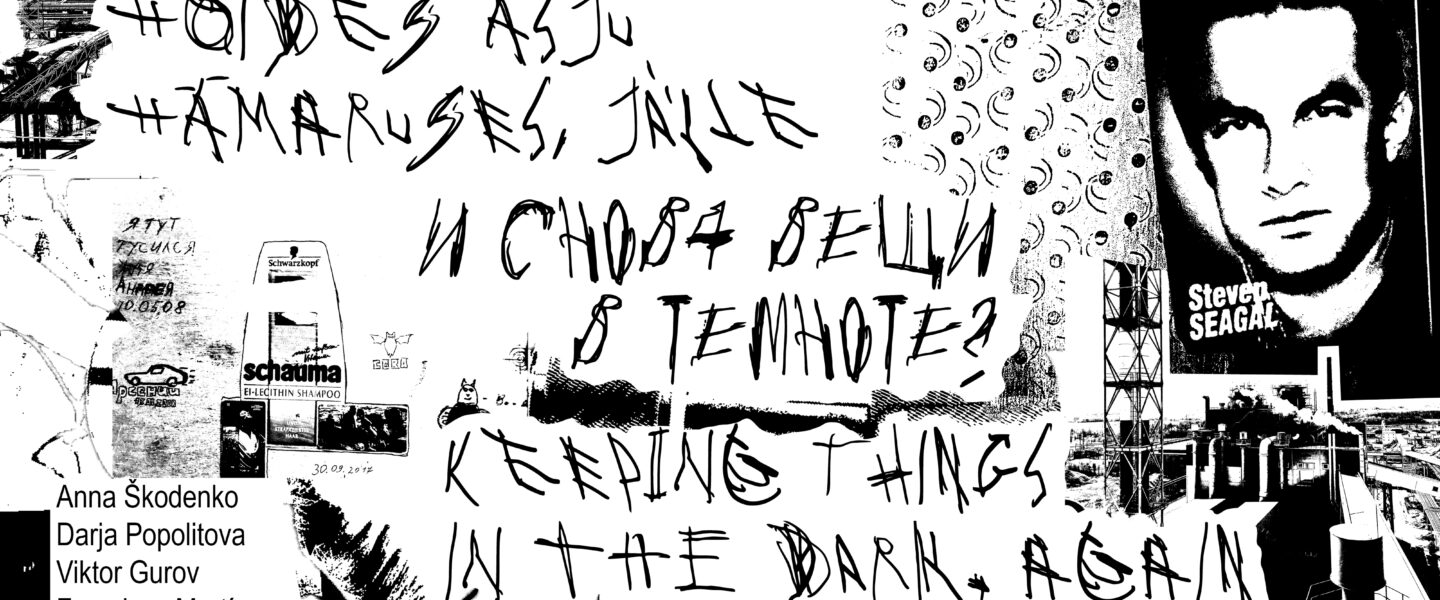 HOIDES ASJU
HÄMARUSES, JÄLLE
И СНОВА ВЕЩИ
В ТЕМНОТЕ?
KEEPING THINGS
IN THE DARK, AGAIN
Steven
SEAGAL
Я ТУТ
ТУСИЛСЯ
АНДРЕЯ
10.05,08
Schwarzkopf
schauma
EI-LECITHIN SHAMPOO
HAAR
30.09.2017
Anna Škodenko
Darja Popolitova
Viktor Gurov